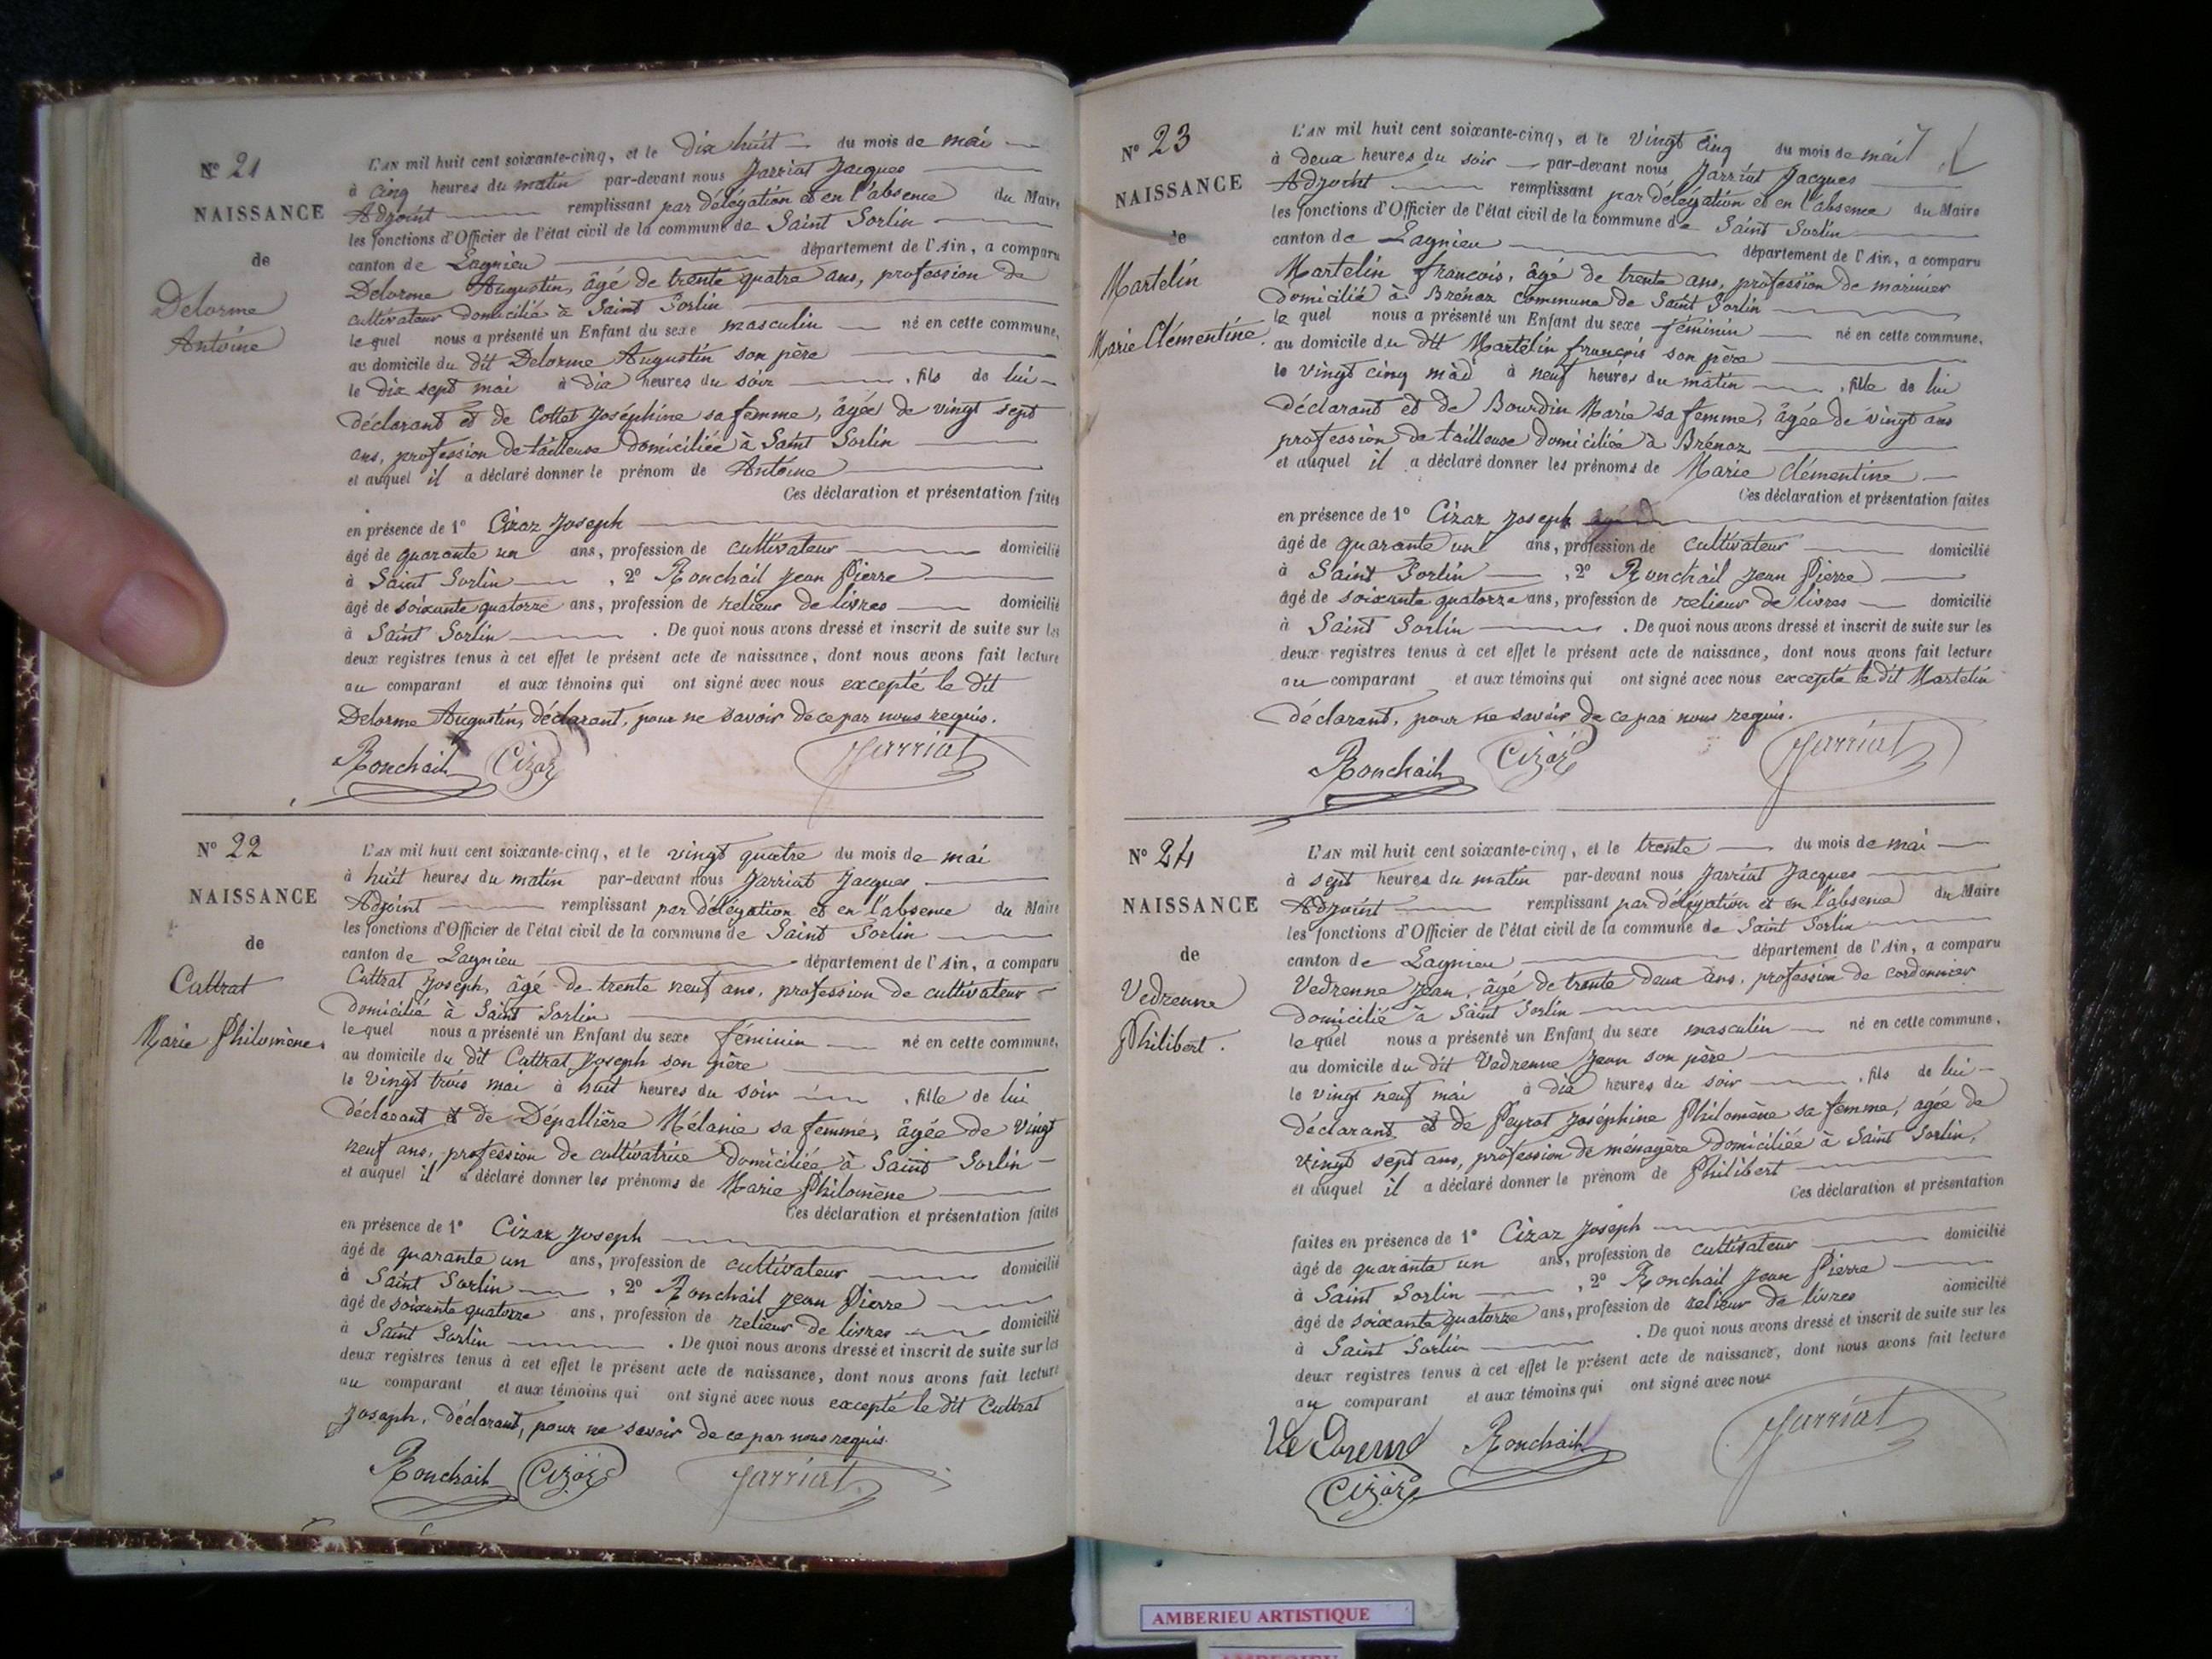 N° 21
NAISSANCE
de
Delorme
Antoine
L'AN mil huit cent soixante-cinq, et le dix huit du mois de mai
à cinq heures du matin par-devant nous Jarriat Jacques
Adjoint remplissant par délégation et en l'absence du Maire
les fonctions d'Officier de l'état civil de la commune de Saint Sorlin
canton de Lagnieu département de l'Ain, a comparu
Delorme Augustin, âgé de trente quatre ans, profession de
cultivateur domicilié à Saint Sorlin
lequel nous a présenté un Enfant du sexe masculin né en cette commune,
au domicile du dit Delorme Augustin son père
le dix sept mai à dix heures du soir , fils de lui
déclarant et de Cottet Joséphine sa femme, âgée de vingt sept
ans, profession de tailleuse domiciliée à Saint Sorlin
et auquel il a déclaré donner le prénom de Antoine
Ces déclaration et présentation faites
en présence de 1° Cizaz Joseph
âgé de quarante un ans, profession de cultivateur domicilié
à Saint Sorlin , 2° Ronchail Jean Pierre
âgé de soixante quatorze ans, profession de relieur de livres domicilié
à Saint Sorlin . De quoi nous avons dressé et inscrit de suite sur les
deux registres tenus à cet effet le présent acte de naissance, dont nous avons fait lecture
au comparant et aux témoins qui ont signé avec nous excepté le dit
Delorme Augustin, déclarant, pour ne savoir de ce par nous requis.
Ronchail Cizaz Jarriat
N° 22
NAISSANCE
de
Cuttrat
Marie Philomène.
L'AN mil huit cent soixante-cinq, et le vingt quatre du mois de mai
à huit heures du matin par-devant nous Jarriat Jacques
Adjoint remplissant par délégation et en l'absence du Maire
les fonctions d'Officier de l'état civil de la commune de Saint Sorlin
canton de Lagnieu département de l'Ain, a comparu
Cuttrat Joseph, âgé de trente neuf ans, profession de cultivateur
domicilié à Saint Sorlin
lequel nous a présenté un Enfant du sexe féminin né en cette commune,
au domicile du dit Cuttrat Joseph son père
le vingt trois mai à huit heures du soir , fille de lui
déclarant et de Dépallière Mélanie sa femme, âgée de vingt
neuf ans, profession de cultivatrice domiciliée à Saint Sorlin
et auquel il a déclaré donner les prénoms de Marie Philomène
Ces déclaration et présentation faites
en présence de 1° Cizaz Joseph
âgé de quarante un ans, profession de cultivateur domicilié
à Saint Sorlin , 2° Ronchail Jean Pierre
âgé de soixante quatorze ans, profession de relieur de livres domicilié
à Saint Sorlin . De quoi nous avons dressé et inscrit de suite sur les
deux registres tenus à cet effet le présent acte de naissance, dont nous avons fait lecture
au comparant et aux témoins qui ont signé avec nous excepté le dit Cuttrat
Joseph, déclarant, pour ne savoir de ce par nous requis.
Ronchail Cizaz Jarriat
N° 23
NAISSANCE
de
Martelin
Marie Clémentine.
L'AN mil huit cent soixante-cinq, et le vingt cinq du mois de mai
à deux heures du soir par-devant nous Jarriat Jacques
Adjoint remplissant par délégation et en l'absence du Maire
les fonctions d'Officier de l'état civil de la commune de Saint Sorlin
canton de Lagnieu département de l'Ain, a comparu
Martelin françois, âgé de trente ans, profession de marinier
domicilié à Brénaz commune de Saint Sorlin
lequel nous a présenté un Enfant du sexe féminin né en cette commune,
au domicile du dit Martelin françois son père
le vingt cinq mai à neuf heures du matin , fille de lui
déclarant et de Bourdin Marie sa femme, âgée de vingt ans
profession de tailleuse domiciliée à Brénaz
et auquel il a déclaré donner les prénoms de Marie Clémentine
Ces déclaration et présentation faites
en présence de 1° Cizaz Joseph
âgé de quarante un ans, profession de cultivateur domicilié
à Saint Sorlin , 2° Ronchail Jean Pierre
âgé de soixante quatorze ans, profession de relieur de livres domicilié
à Saint Sorlin . De quoi nous avons dressé et inscrit de suite sur les
deux registres tenus à cet effet le présent acte de naissance, dont nous avons fait lecture
au comparant et aux témoins qui ont signé avec nous excepté le dit Martelin
déclarant, pour ne savoir de ce par nous requis.
Ronchail Cizaz Jarriat
N° 24
NAISSANCE
de
Vedrenne
Philibert.
L'AN mil huit cent soixante-cinq, et le trente du mois de mai
à sept heures du matin par-devant nous Jarriat Jacques
Adjoint remplissant par délégation et en l'absence du Maire
les fonctions d'Officier de l'état civil de la commune de Saint Sorlin
canton de Lagnieu département de l'Ain, a comparu
Vedrenne Jean, âgé de trente deux ans, profession de cordonnier
domicilié à Saint Sorlin
lequel nous a présenté un Enfant du sexe masculin né en cette commune,
au domicile du dit Vedrenne Jean son père
le vingt neuf mai à dix heures du soir , fils de lui
déclarant et de Peyrot Joséphine Philomène sa femme, agée de
vingt sept ans, profession de ménagère domiciliée à Saint Sorlin,
et auquel il a déclaré donner le prénom de Philibert
Ces déclaration et présentation
faites en présence de 1° Cizaz Joseph
âgé de quarante un ans, profession de cultivateur domicilié
à Saint Sorlin , 2° Ronchail Jean Pierre
âgé de soixante quatorze ans, profession de relieur de livres domicilié
à Saint Sorlin . De quoi nous avons dressé et inscrit de suite sur les
deux registres tenus à cet effet le présent acte de naissance, dont nous avons fait lecture
au comparant et aux témoins qui ont signé avec nous
Ronchail Jarriat
Cizaz
AMBERIEU ARTISTIQUE